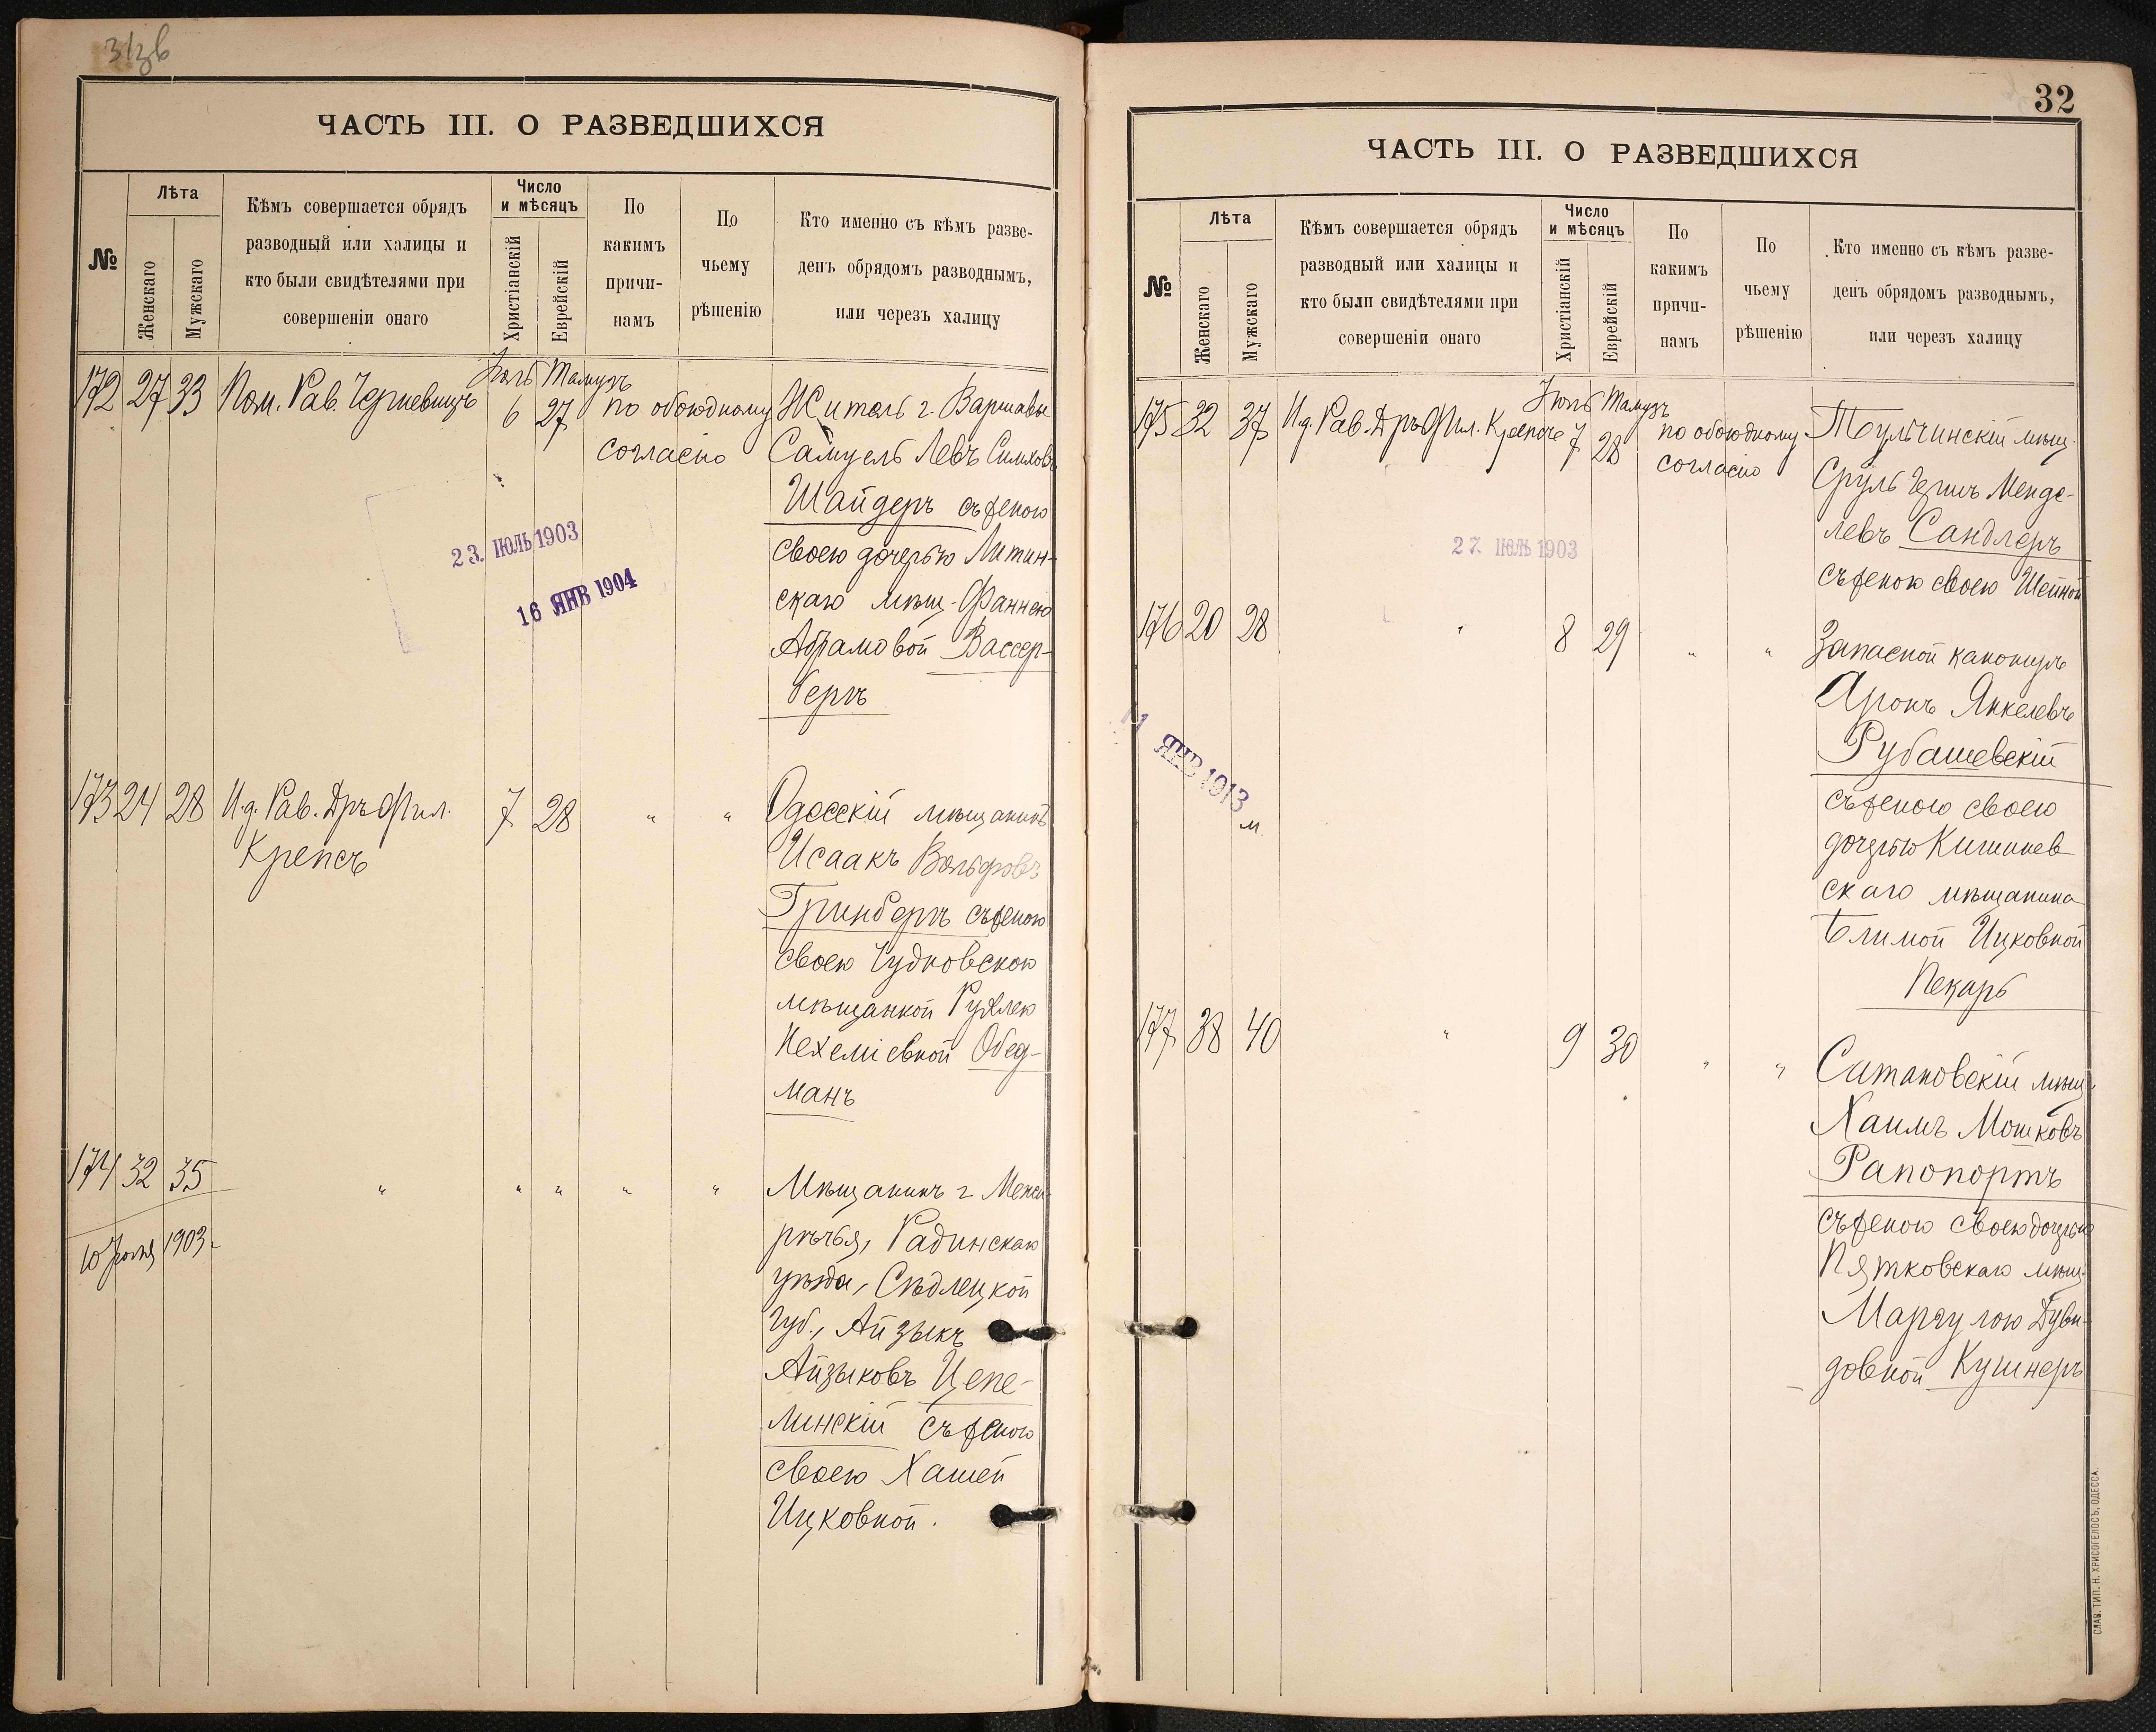 ЧАСТЬ III. О РАЗВЕДШИХСЯ
№
Лѣта
Женскаго
Мужскаго
Кѣмъ совершается обрядъ
разводный или халицы и
кто были свидѣтелями при
совершеніи онаго
Число
и мѣсяцъ
Христіанскій
Еврейскій
По
какимъ
причи-
намъ
По
чьему
рѣшенію
Кто именно съ кѣмъ разве-
денъ обрядомъ разводнымъ,
или черезъ халицу
Іюль Тамузъ
172 27 33 Пом. Рав. Черневицъ 6 27 по обоюдному Житель г. Варшавы
согласію Самуель Левъ Симховъ
Шайдеръ съ женою
своею дочерью Литин-
скаго мѣщ. Фаннею
Абрамовой Вассер-
бергъ
23. ІЮЛЬ 1903
16 ЯНВ 1904
173 24 28 И.д. Рав. Дръ Фил. 7 28 " " Одесскій мѣщанинъ
Крепсъ Исаакъ Вольфовъ
Гринбергъ съ женою
своею Чудновскою
мѣщанкой Рухлею
Нехеміевной Обед-
манъ
174 32 35 " " " " " Мѣщанинъ г. Межи-
рѣчья, Радинскаго
уѣзда, Сѣдлецкой
Губ., Айзыкъ
Айзыковъ Цепе-
линскій съ женою
своею Хашей
Ицковной.
10 Іюля 1903 г.
32
ЧАСТЬ III. О РАЗВЕДШИХСЯ
№
Лѣта
Женскаго
Мужскаго
Кѣмъ совершается обрядъ
разводный или халицы и
кто были свидѣтелями при
совершеніи онаго
Число
и мѣсяцъ
Христіанскій
Еврейскій
По
какимъ
причи-
намъ
По
чьему
рѣшенію
Кто именно съ кѣмъ разве-
денъ обрядомъ разводнымъ,
или черезъ халицу
Іюль Тамузъ
175 32 37 И.д. Рав. Дръ Фил. Крепсъ 7 28 по обоюдному Тульчинскій мѣщ.
согласію Сруль Герш Менде-
левъ Сандлеръ
съ женою своею Шейной
27. ІЮЛЬ 1903
176 20 28 " 8 29 " " Запасной канониръ
Аронъ Янкелевъ
Рубашевскій
съ женою своею
дочерью Кишинев-
скаго мѣщанина
Блимой Ицковной
Пекарь
11 ЯНВ 1913
177 38 40 " 9 30 " " Сатановскій мѣщ.
Хаимъ Мошковъ
Рапопортъ
съ женою своею дочерью
Пятковскаго мѣщ.
Маргулою Дуви-
довной Кушнеръ
СЛАВ. ТИП. Н. ХРИСОГЕЛОСЪ, ОДЕССА.